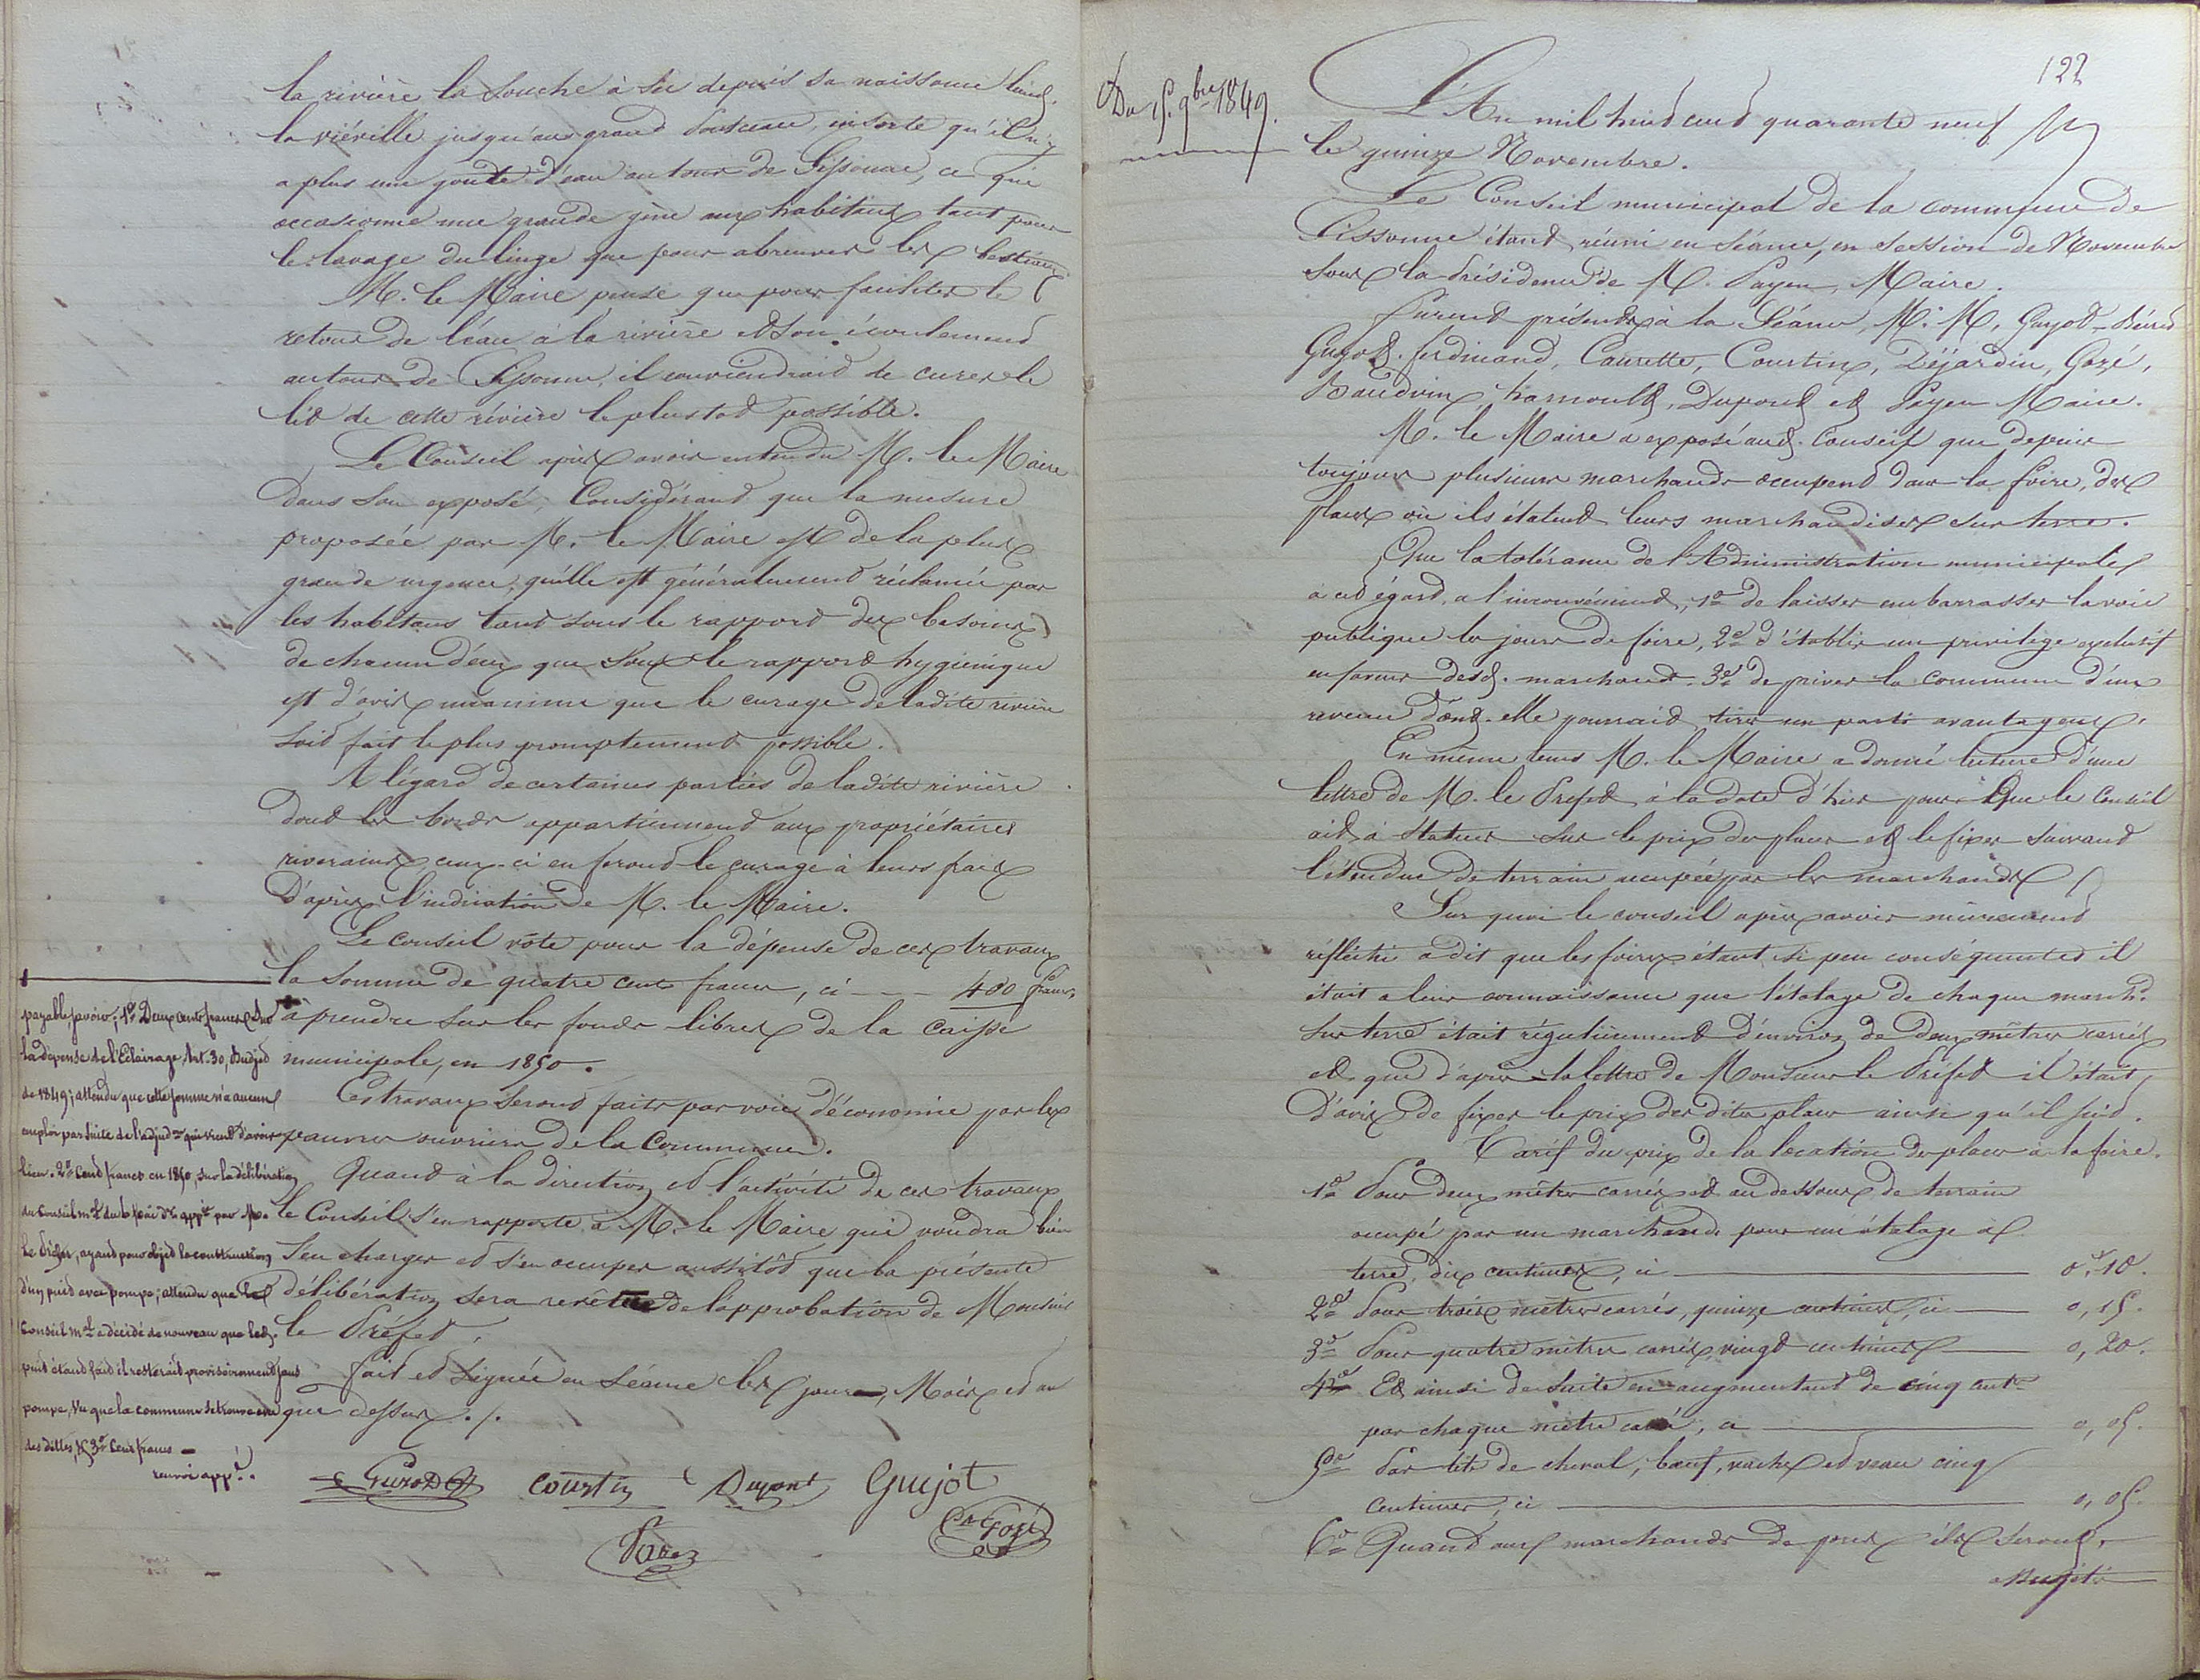 la rivière la Souche à sec depuis sa naissance
la viéville jusqu'au grand Ponteau, ensorte qu'il n'y
a plus une goutte d'eau autour de Sissonne, ce qui
occasionne une grande gêne aux habitans tant pour
le lavage du linge que pour abreuver les bestiaux
M. le Maire pense que pour faciliter le
retour de l'eau à la rivière et son écoulement
autour de Sissonne, il conviendrait de curer le
lit de cette rivière le plustot possible.
Le Conseil après avoir entendu M. le Maire
dans son exposé, Considérant que la mesure
proposée par M. le Maire est de la plus
grande urgence, qu'elle est généralement réclamée par
les habitans tant sous le rapport des besoins
de chacun d'eux que sous le rapport hygiénique
est d'avis unanime que le curage de ladite rivière
soit fait le plus promptement possible.
A l'égard de certaines parties de ladite rivière
dont les bords appartiennent aux propriétaires
riverains, ceux-ci en feront le curage à leurs frais
d'après l'indication de M. le Maire.
Le conseil vote pour la dépense de ces travaux
la somme de quatre cents francs, ci - - - 400 francs,
à prendre sur les fonds libres de la caisse
municipale, en 1850.
Ces travaux seront faits par voie d'économie par les
pauvres ouvriers de la Commune.
Quand à la direction et l'activité de ces travaux
le Conseil s'en rapporte à M. le Maire qui voudra bien
s'en charger et s'en occuper aussitôt que la présente
délibération sera revêtue de l'approbation de Monsieur
le Préfet.
fait et signée en séance les jour, Mois et an
que dessus ./.
payable, savoir; 1° Deux cents francs sur
la dépense de l'Eclairage, Art. 30, Budjet
de 1849; attendu que cette somme n'a aucun
emploi par suite de l'adjudon qui vient d'avoir
lieu. 2° Cent francs en 1850, sur la délibération
du Conseil mal du 6 Mai dr appée par M.
le Préfet, ayant pour objet la construction
d'un puid avec pompe; attendu que led
Conseil mal a décidé de nouveau que led.
puid étant fait il resterait provisoirement sans
pompe, Vu que la commune se trouve avec
des dettes, & 3° Cent francs
renvoi appé.
Guyot Courtin Dupont Guyot
Payen Gozé
122
Du 15. 9bre 1849.
L'An mil huit cent quarante neuf
le quinze Novembre.
Le Conseil municipal de la commune de
Sissonne étant réuni en séance, en session de Novembre
sous la Présidence de M. Payen, Maire.
Furent présents à la Séance, M.M. Guyot-Désiré
Guyot ferdinand, Caurette, Courtin, Déjardin, Gozé,
Baudvin, harnould, Dupont et Payen Maire.
M. le Maire a exposé aud. Conseil que depuis
toujours plusieurs marchands occupent dans la foire, des
places où ils étalent leurs marchandises sur terre.
Que la tolérance de l'Administration municipale
à cet égard, a l'inconvénient, 1° de laisser embarrasser la voie
publique les jours de foire, 2° d'établir un privilège exclusif
en faveur desd. marchands 3° de priver la commune d'un
revenu dont elle pourrait tirer un parti avantageux.
En même tems M. le Maire a donné lecture d'une
lettre de M. le Préfet, à la date d'hier pour que le Conseil
ait à statuer sur le prix des places et le fixer suivant
l'étendue de terrain occupée par les marchands
Sur quoi le conseil après avoir mûrement
réfléchi a dit que les foires étant si peu conséquentes il
était à leur connaissance que l'étalage de chaque march.d
sur terre était régulièrement d'environ de deux mètres carrés
et que d'après la lettre de Monsieur le Préfet il était
d'avis de fixer le prix des dites places ainsi qu'il suit.
Tarif du prix de la location des places à la foire.
1° Pour deux mètres carrés et au dessous de terrain
occupé par un marchand pour un étalage à
terre, dix centimes, ci 0, 10.
2° Pour trois mètres carrés, quinze centimes, ci 0, 15.
3° Pour quatre mètres carrés, vingt centimes 0, 20.
4° Et ainsi de suite en augmentant de cinq cent.es
par chaque mètre carré, ci 0, 05.
5° Par tête de cheval, bœuf, vache et veau cinq
centimes, ci 0, 05.
6° Quand aux marchands de porcs ils seront